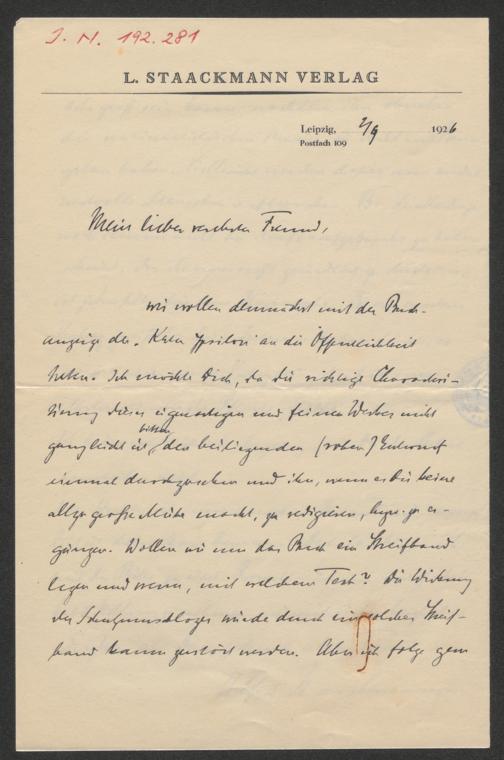 J. N. 192.281
L. STAACKMANN VERLAG
Leipzig, 2/9 1926
Postfach 109
Mein lieber verehrter Freund,
wir wollen demnächst mit der Buch-
anzeige der "Ypsilon" an die Öffentlichkeit
treten. Ich möchte Dich, da die richtige Charakteri-
sierung dieses eigenartigen und feinen Werkes nicht
ganz leicht ist, bitten den beiliegenden (rohen) Entwurf
einmal durchzusehen und ihn, wenn es Dir keine
allzu große Mühe macht, zu redigieren, bezw. zu er-
gänzen. Wollen wir um das Buch ein Streifband
legen und wenn, mit welchem Text? Die Wirkung
des Schutzumschlages würde durch ein solches Streif-
band kaum gestört werden. Aber ich folge gern